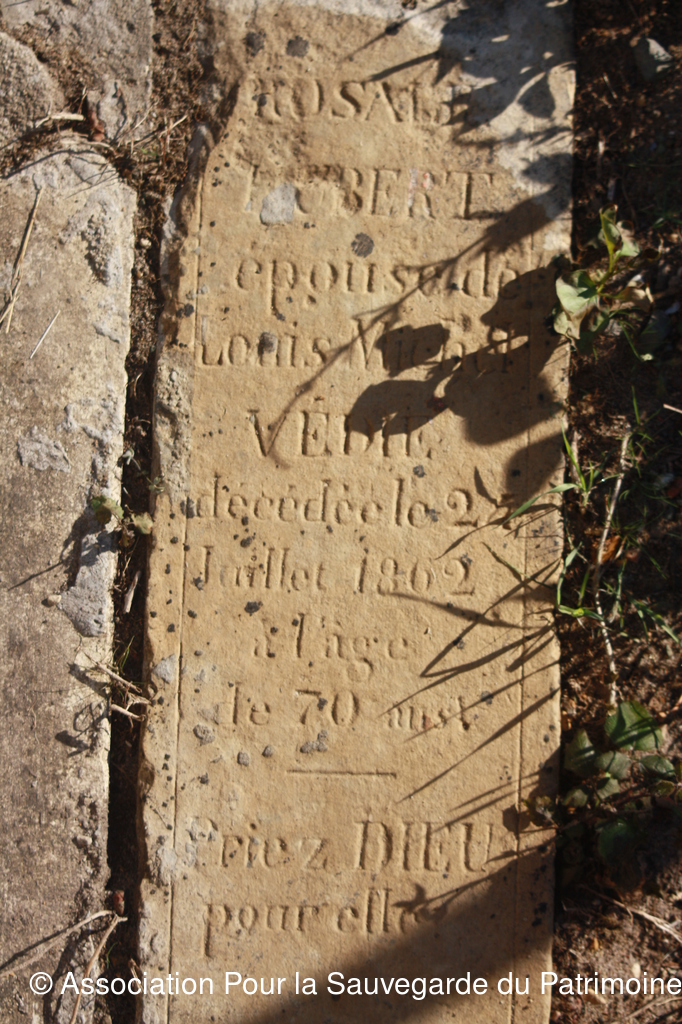 ROSALIE
HUBERT
épouse de
Louis Michel
VÉDIE
décédée le 2
Juillet 1862
à l'âge
de 70 ans
Priez DIEU
pour elle
© Association Pour la Sauvegarde du Patrimoine